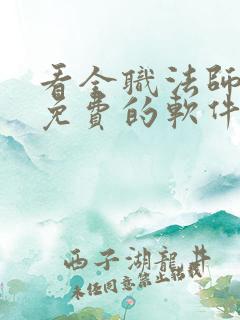 看全職法師
免費的軟件
西子湖龍井
未任同意禁止轉載